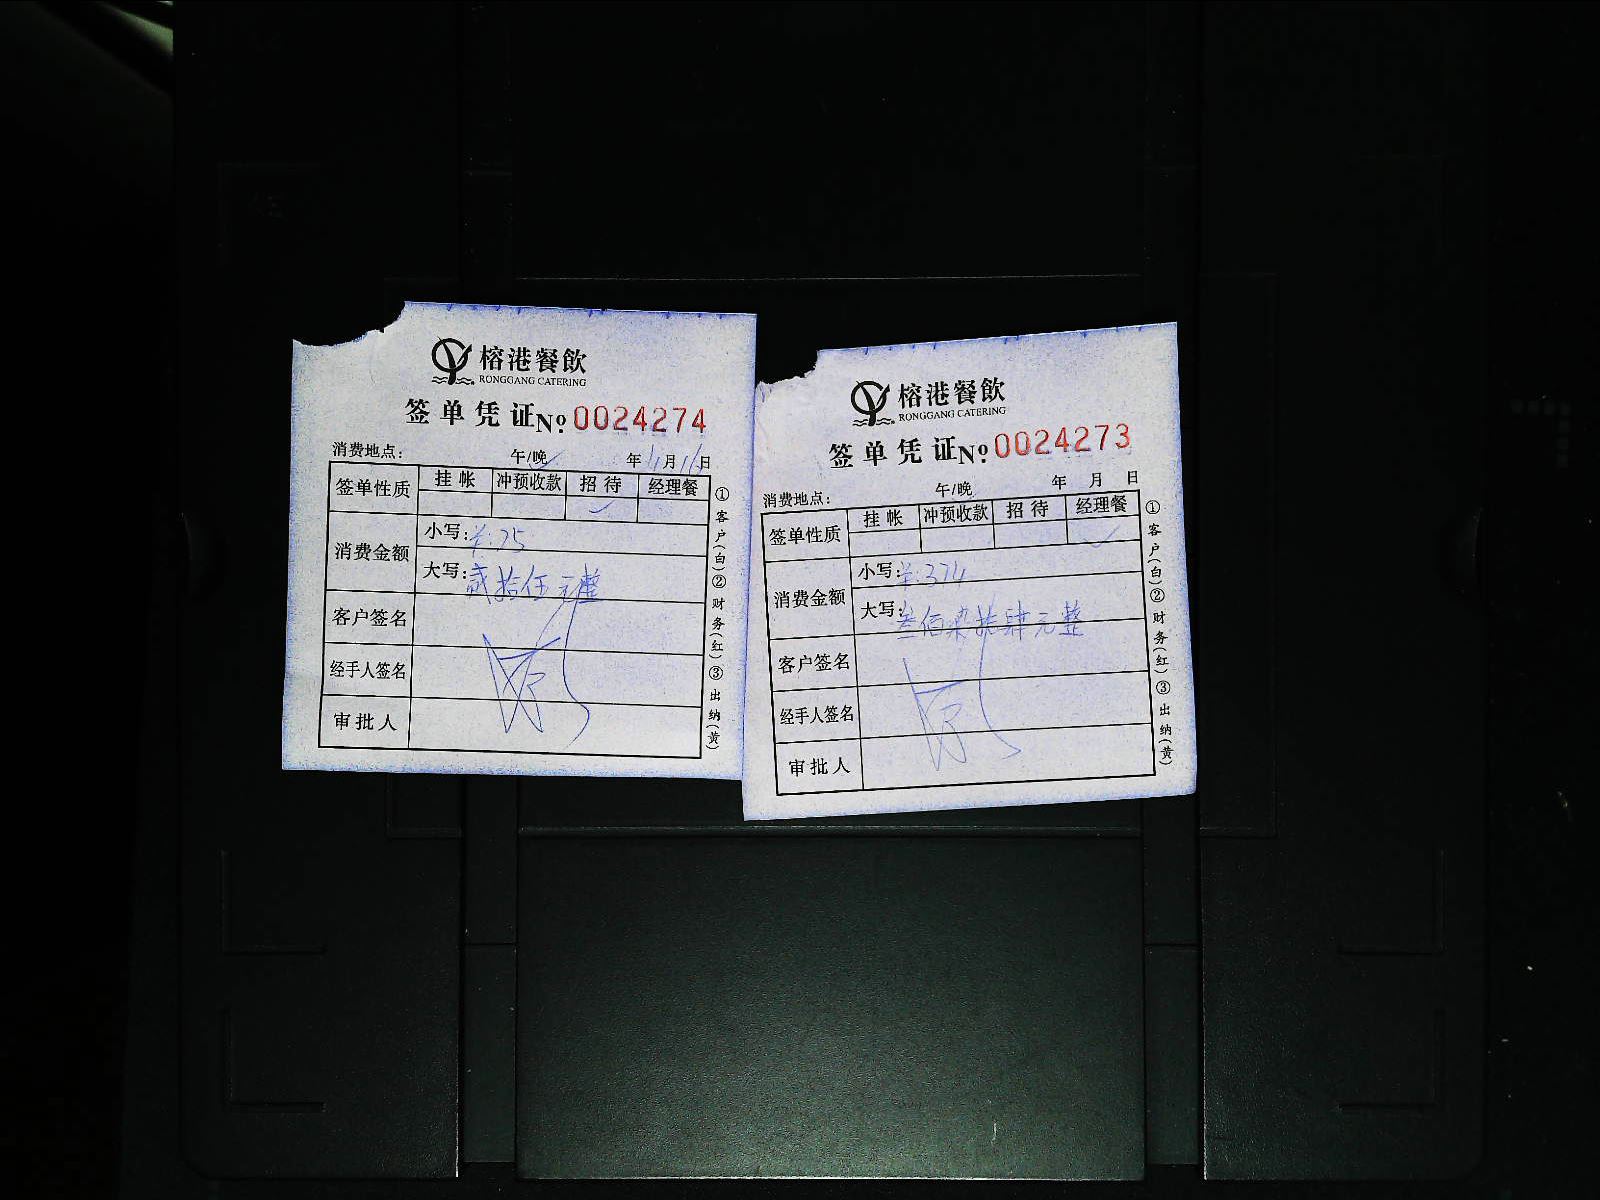 榕港餐飲
RONGGANG CATERING
签单凭证 No 0024274
消费地点： 午/晚 年 11月16日
签单性质 挂帐 冲预收款 招待 经理餐
✓
消费金额
小写：¥:25
大写：贰拾伍元整
客户签名
经手人签名
审批人
①客户(白)②财务(红)③出纳(黄)
榕港餐飲
RONGGANG CATERING
签单凭证 No 0024273
消费地点： 午/晚 年 月 日
签单性质 挂帐 冲预收款 招待 经理餐
✓
消费金额
小写：¥:374
大写：叁佰柒拾肆元整
客户签名
经手人签名
审批人
①客户(白)②财务(红)③出纳(黄)